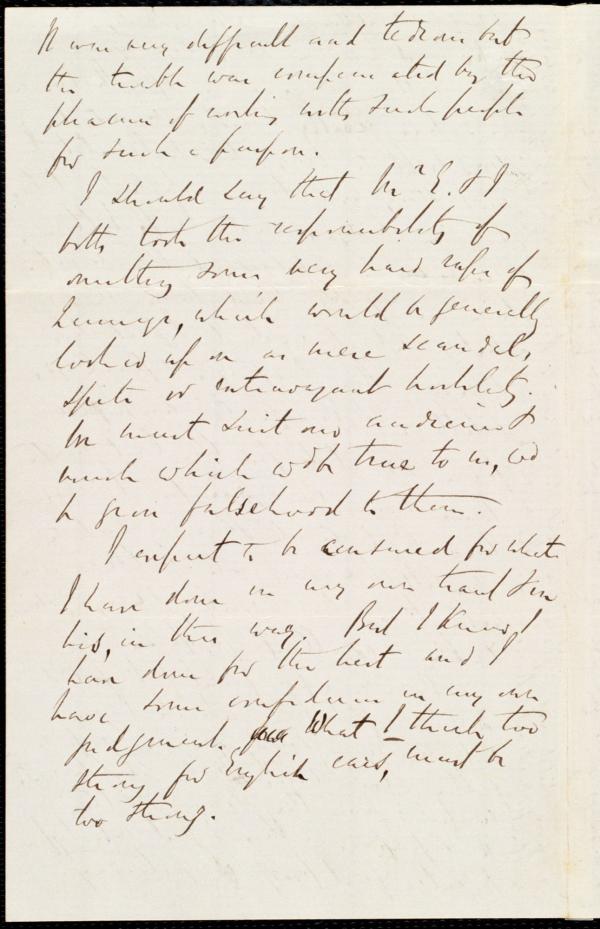 It was very difficult and tedious but
the trouble was compensated by the
pleasure of working with such people
for such a purpose.
I should say that Mr E. & I
both took the responsibility of
omitting some very hard raps of
Lunnage, which would be generally
looked upon as mere scandal,
spite or extravagant hostility.
We must suit our audience &
much which wd be true to us, wd
be gross falsehood to them.
I expect to be censured for what
I have done in my own tract & in
his, in this way. But I know I
have done for the best and I
have some confidence in my own
judgment. What I think too
strong for English ears, must be
too strong.